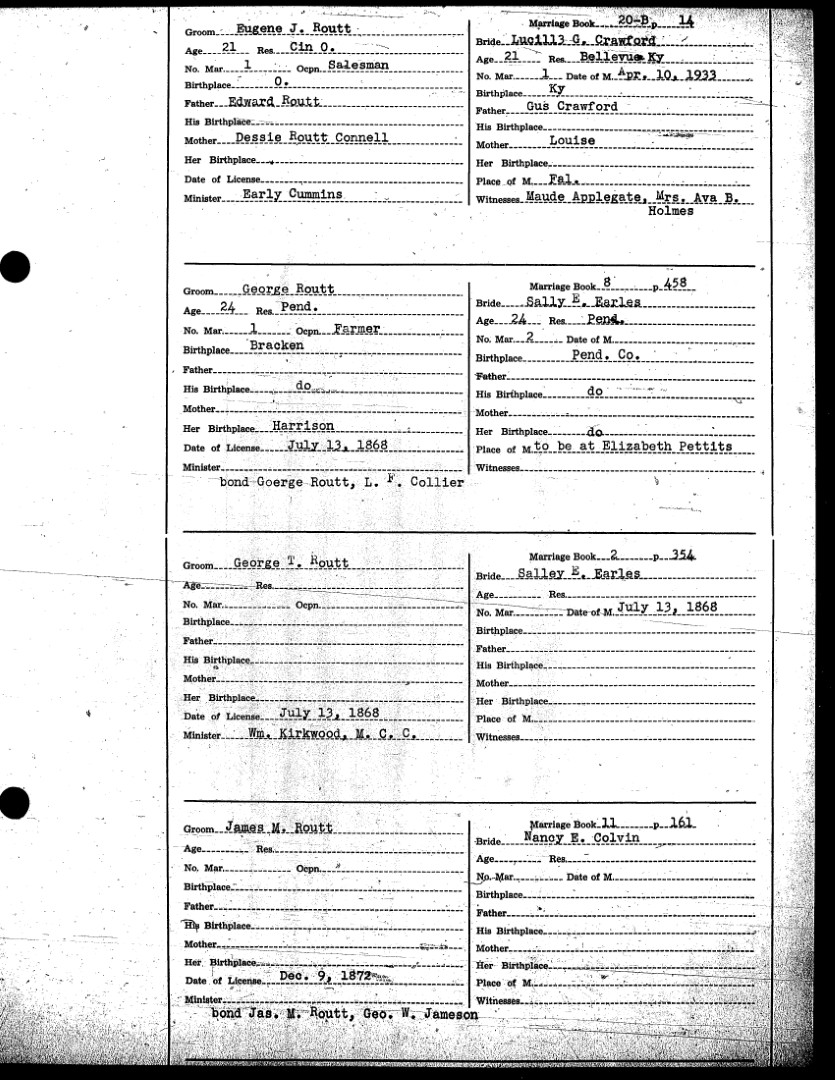 Groom Eugene J. Routt
Age 21 Res. Cin O.
No. Mar. 1 Ocpn. Salesman
Birthplace O.
Father Edward Routt
His Birthplace
Mother Dessie Routt Connell
Her Birthplace
Date of License
Minister Early Cummins
Marriage Book 20-B p. 14
Bride Lucill3 G. Crawford
Age 21 Res. Bellevue Ky
No. Mar. 1 Date of M. Apr. 10, 1933
Birthplace Ky
Father Gus Crawford
His Birthplace
Mother Louise
Her Birthplace
Place of M. Fal.
Witnesses Maude Applegate, Mrs. Ava B.
Holmes
Groom George Routt
Age 24 Res. Pend.
No. Mar. 1 Ocpn. Farmer
Birthplace Bracken
Father
His Birthplace do
Mother
Her Birthplace Harrison
Date of License July 13, 1868
Minister
bond Goerge Routt, L. F. Collier
Marriage Book 8 p. 458
Bride Sally E. Earles
Age 24 Res. Pend.
No. Mar. 2 Date of M.
Birthplace Pend. Co.
Father
His Birthplace do
Mother
Her Birthplace do
Place of M. to be at Elizabeth Pettits
Witnesses
Groom George T. Routt
Age Res.
No. Mar. Ocpn.
Birthplace
Father
His Birthplace
Mother
Her Birthplace
Date of License July 13, 1868
Minister Wm. Kirkwood, M. C. C.
Marriage Book 2 p. 354
Bride Salley E. Earles
Age Res.
No. Mar. Date of M. July 13, 1868
Birthplace
Father
His Birthplace
Mother
Her Birthplace
Place of M.
Witnesses
Groom James M. Routt
Age Res.
No. Mar. Ocpn.
Birthplace
Father
His Birthplace
Mother
Her Birthplace
Date of License Dec. 9, 1872
Minister
bond Jas. M. Routt, Geo. W. Jameson
Marriage Book 11 p. 161
Bride Nancy E. Colvin
Age Res.
No. Mar. Date of M.
Birthplace
Father
His Birthplace
Mother
Her Birthplace
Place of M.
Witnesses